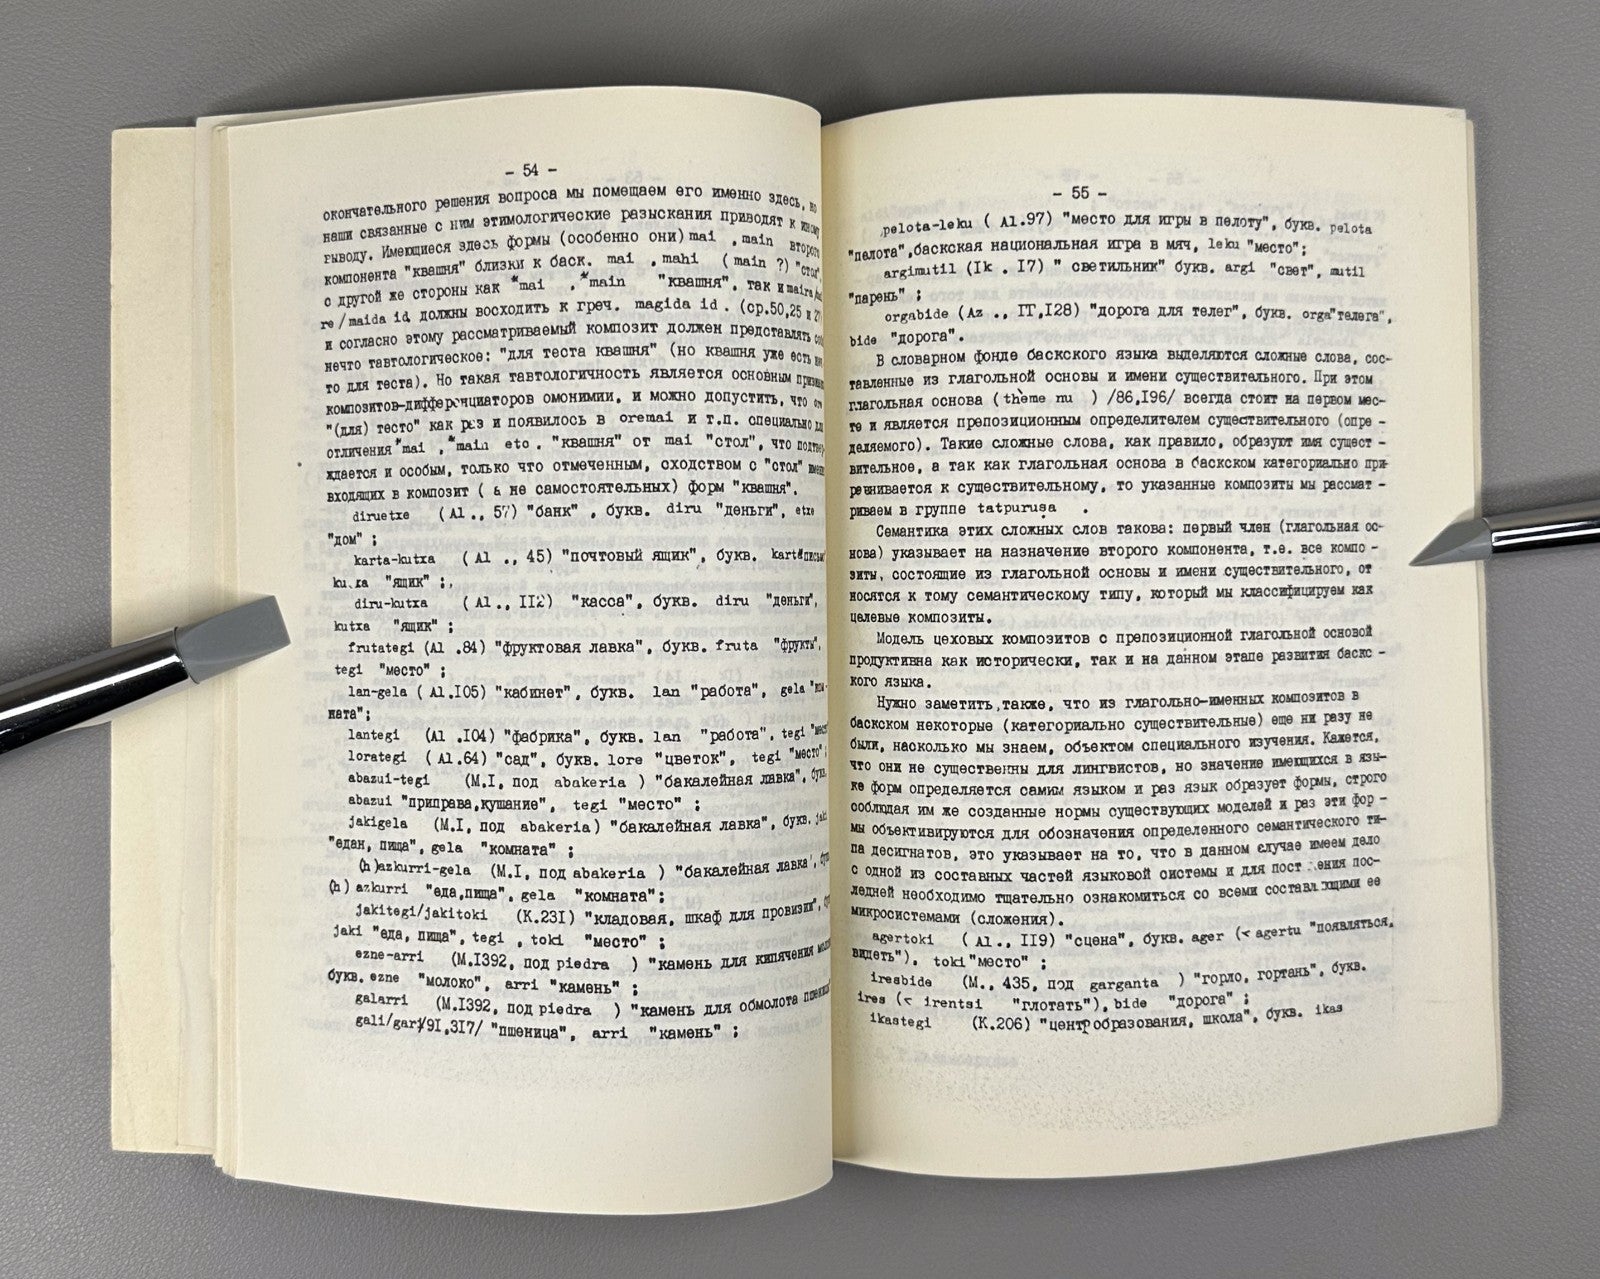 - 54 -
окончательного решения вопроса мы помещаем его именно здесь, но
наши связанные с ним этимологические разыскания приводят к иному
выводу. Имеющиеся здесь формы (особенно они) mai , main второго
компонента "квашня" близки к баск. mai , mahi ( main ?) "стол",
с другой же стороны как *mai , *main "квашня", так и maira/
re/maida id должны восходить к греч. magida id . (ср.50,25 и
и согласно этому рассматриваемый композит должен представлять
нечто тавтологическое: "для теста квашня" (но квашня уже есть
то для теста). Но такая тавтологичность является основным
композитов-дифференциаторов омонимии, и можно допустить, что
"(для) тесто" как раз и появилось в oremai и т.п. специально для
отличения *mai , *main etc . "квашня" от mai "стол", что
ждается и особым, только что отмеченным, сходством с "стол"
входящих в композит ( а не самостоятельных) форм "квашня".
diruetxe (Al., 57) "банк" , букв. diru "деньги", etxe
"дом" ;
karta-kutxa (Al ., 45) "почтовый ящик", букв. karta
kutxa "ящик" ;,
diru-kutxa (Al., II2) "касса", букв. diru "деньги",
kutxa "ящик" ;
frutategi (Al .84) "фруктовая лавка", букв. fruta "фрукты",
tegi "место" ;
lan-gela ( Al.I05) "кабинет", букв. lan "работа", gela "ком-
ната";
lantegi (Al .I04) "фабрика", букв. lan "работа", tegi "место"
lorategi ( Al.64) "сад", букв. lore "цветок", tegi "место";
abazui-tegi (M.I, под abakeria ) "бакалейная лавка", букв.
abazui "приправа,кушание", tegi "место" ;
jakigela (M.I, под abakeria) "бакалейная лавка", букв. jaki
"едан, пища", gela "комната" ;
(h)azkurri-gela (M.I, под abakeria ) "бакалейная лавка",
(h) azkurri "еда,пища", gela "комната";
jakitegi/jakitoki (K.23I) "кладовая, шкаф для провизии",
jaki "еда, пища", tegi , toki "место" ;
ezne-arri (M.I392, под piedra ) "камень для кипячения
букв. ezne "молоко", arri "камень" ;
galarri (M.I392, под piedra ) "камень для обмолота пшеницы"
gali/gari/9I,3I7/ "пшеница", arri "камень" ;
- 55 -
pelota-leku ( Al.97) "место для игры в пелоту", букв. pelota
"пелота",баскская национальная игра в мяч, leku "место";
argimutil (Ik . I7) " светильник" букв. argi "свет", mutil
"парень" ;
orgabide (Az ., IT,I28) "дорога для телег", букв. orga"телега",
bide "дорога".
В словарном фонде баскского языка выделяются сложные слова, сос-
тавленные из глагольной основы и имени существительного. При этом
глагольная основа (thème nu ) /86,I96/ всегда стоит на первом мес-
те и является препозиционным определителем существительного (опре -
деляемого). Такие сложные слова, как правило, образуют имя сущест -
вительное, а так как глагольная основа в баскском категориально при-
равнивается к существительному, то указанные композиты мы рассмат -
риваем в группе tatpuruṣa .
Семантика этих сложных слов такова: первый член (глагольная ос-
нова) указывает на назначение второго компонента, т.е. все компо -
зиты, состоящие из глагольной основы и имени существительного, от
носятся к тому семантическому типу, который мы классифицируем как
целевые композиты.
Модель цеховых композитов с препозиционной глагольной основой
продуктивна как исторически, так и на данном этапе развития баскс -
кого языка.
Нужно заметить,также, что из глагольно-именных композитов в
баскском некоторые (категориально существительные) еще ни разу не
были, насколько мы знаем, объектом специального изучения. Кажется,
что они не существенны для лингвистов, но значение имеющихся в язы-
ке форм определяется самим языком и раз язык образует формы, строго
соблюдая им же созданные нормы существующих моделей и раз эти фор -
мы объективируются для обозначения определенного семантического ти-
па десигнатов, это указывает на то, что в данном случае имеем дело
с одной из составных частей языковой системы и для построения пос-
ледней необходимо тщательно ознакомиться со всеми составляющими ее
микросистемами (сложения).
agertoki ( Al., II9) "сцена", букв. ager (< agertu "появляться,
видеть"), toki"место" ;
iresbide (M., 435, под garganta ) "горло, гортань", букв.
ires (< irentsi "глотать"), bide "дорога" ;
ikastegi (K.206) "центр образования, школа", букв. ikas